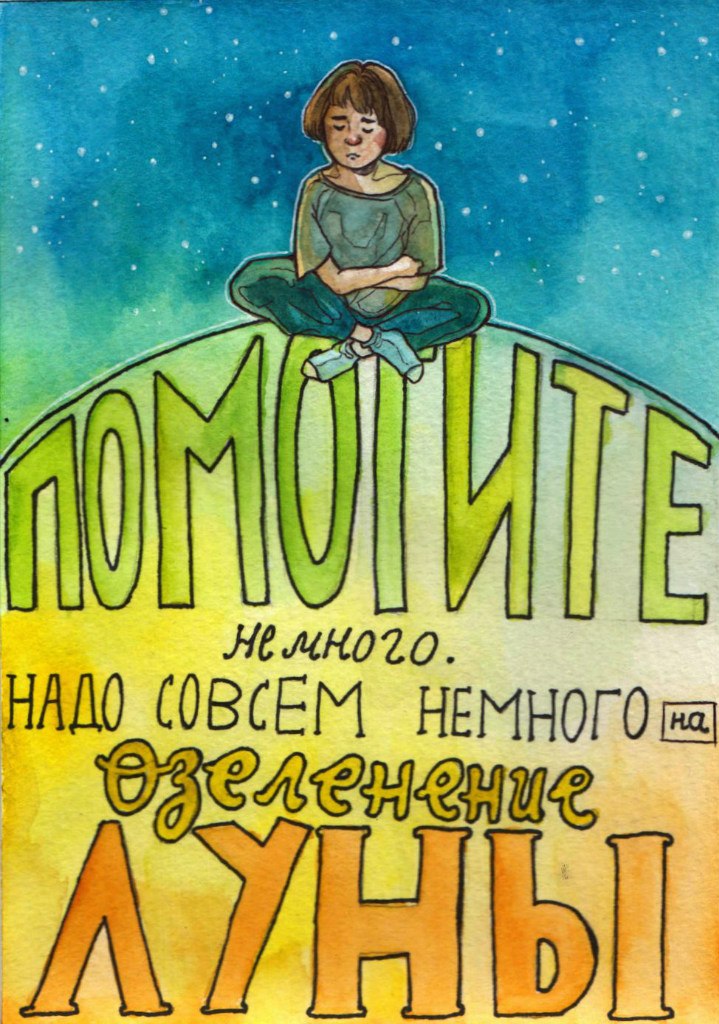 ПОМОГИТЕ
немного.
НАДО СОВСЕМ НЕМНОГО на
Озеленение
ЛУНЫ